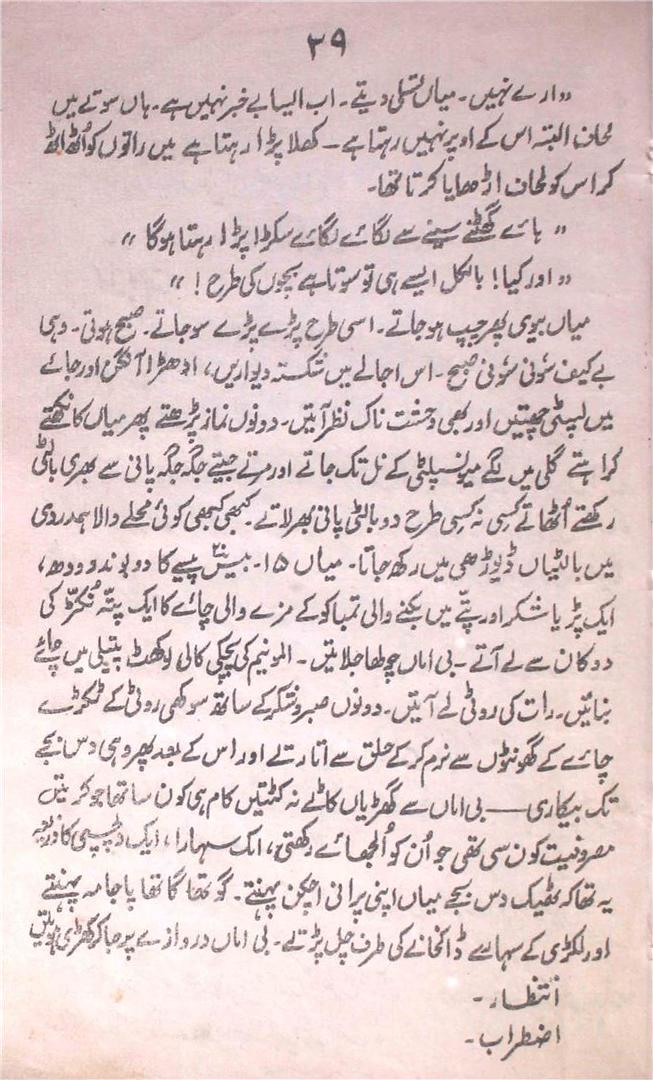 ۳۹
"ارے نہیں۔ میاں تسلی دیتے۔ اب ایسا بے خبر نہیں ہے۔ ہاں سوتے میں
لحاف البتہ اس کے اوپر نہیں رہتا ہے — کھلا پڑا رہتا ہے میں راتوں کو اُٹھ اٹھ
کر اس کو لحاف اڑھایا کرتا تھا۔
"ہائے گھٹنے سینے سے لگائے لگائے سکڑا پڑا رہتا ہوگا"
"اور کیا! بالکل ایسے ہی تو سوتا ہے بچوں کی طرح!"
میاں بیوی پھر چپ ہو جاتے۔ اسی طرح پڑے پڑے سو جاتے۔ صبح ہوتی۔ وہی
بے کیف سُونی سُونی صبح۔ اس اجالے میں شکستہ دیواریں، ادھڑا آنگن اور جالے
میں لپٹی چھتیں اور بھی وحشت ناک نظر آتیں۔ دونوں نماز پڑھتے پھر میاں کانکھتے
کراہتے گلی میں لگے میونسپلٹی کے نل تک جاتے اور مرتے جیتے جگہ جگہ پانی سے بھری بالٹی
رکھتے اُٹھاتے کسی نہ کسی طرح دو بالٹی پانی بھر لاتے۔ کبھی کبھی کوئی محلے والا ہمدردی
میں بالٹیاں ڈیوڑھی میں رکھ جاتا۔ میاں ۱۵۔ بیس پیسے کا دو بوند دودھ،
ایک پڑیا شکر اور پتّے میں بکنے والی تمباکو کے مزے والی چائے کا ایک پتّہ نُکڑ کی
دوکان سے لے آتے۔ بی اماں چولھا جلاتیں۔ المونیم کی پچکی کالی لوکھٹ پتیلی میں چائے
بناتیں۔ رات کی روٹی لے آتیں۔ دونوں صبر و شکر کے ساتھ سوکھی روٹی کے ٹکڑے
چائے کے گھونٹوں سے نرم کر کے حلق سے اتارتے اور اس کے بعد پھر وہی دس بجے
تک بیکاری — بی اماں سے گھڑیاں کاٹے نہ کٹتیں کام ہی کون سا تھا جو کرتیں
مصروفیت کون سی تھی جو اُن کو اُلجھائے رکھتی، اک سہارا، ایک دلچسپی کا ذریعہ
یہ تھا کہ ٹھیک دس بجے میاں اپنی پرانی اچکن پہنتے۔ گوتھا گاتھا پاجامہ پہنتے
اور لکڑی کے سہارے ڈاکخانے کی طرف چل پڑتے۔ بی اماں دروازے پر جا کر کھڑی ہوتیں
انتظار۔
اضطراب۔